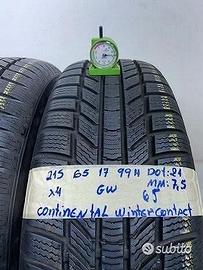 215 65 17 99H DOT:21
x4 GW MM: 7,5
65
CONTINENTAL WINTERCONTACT
subito